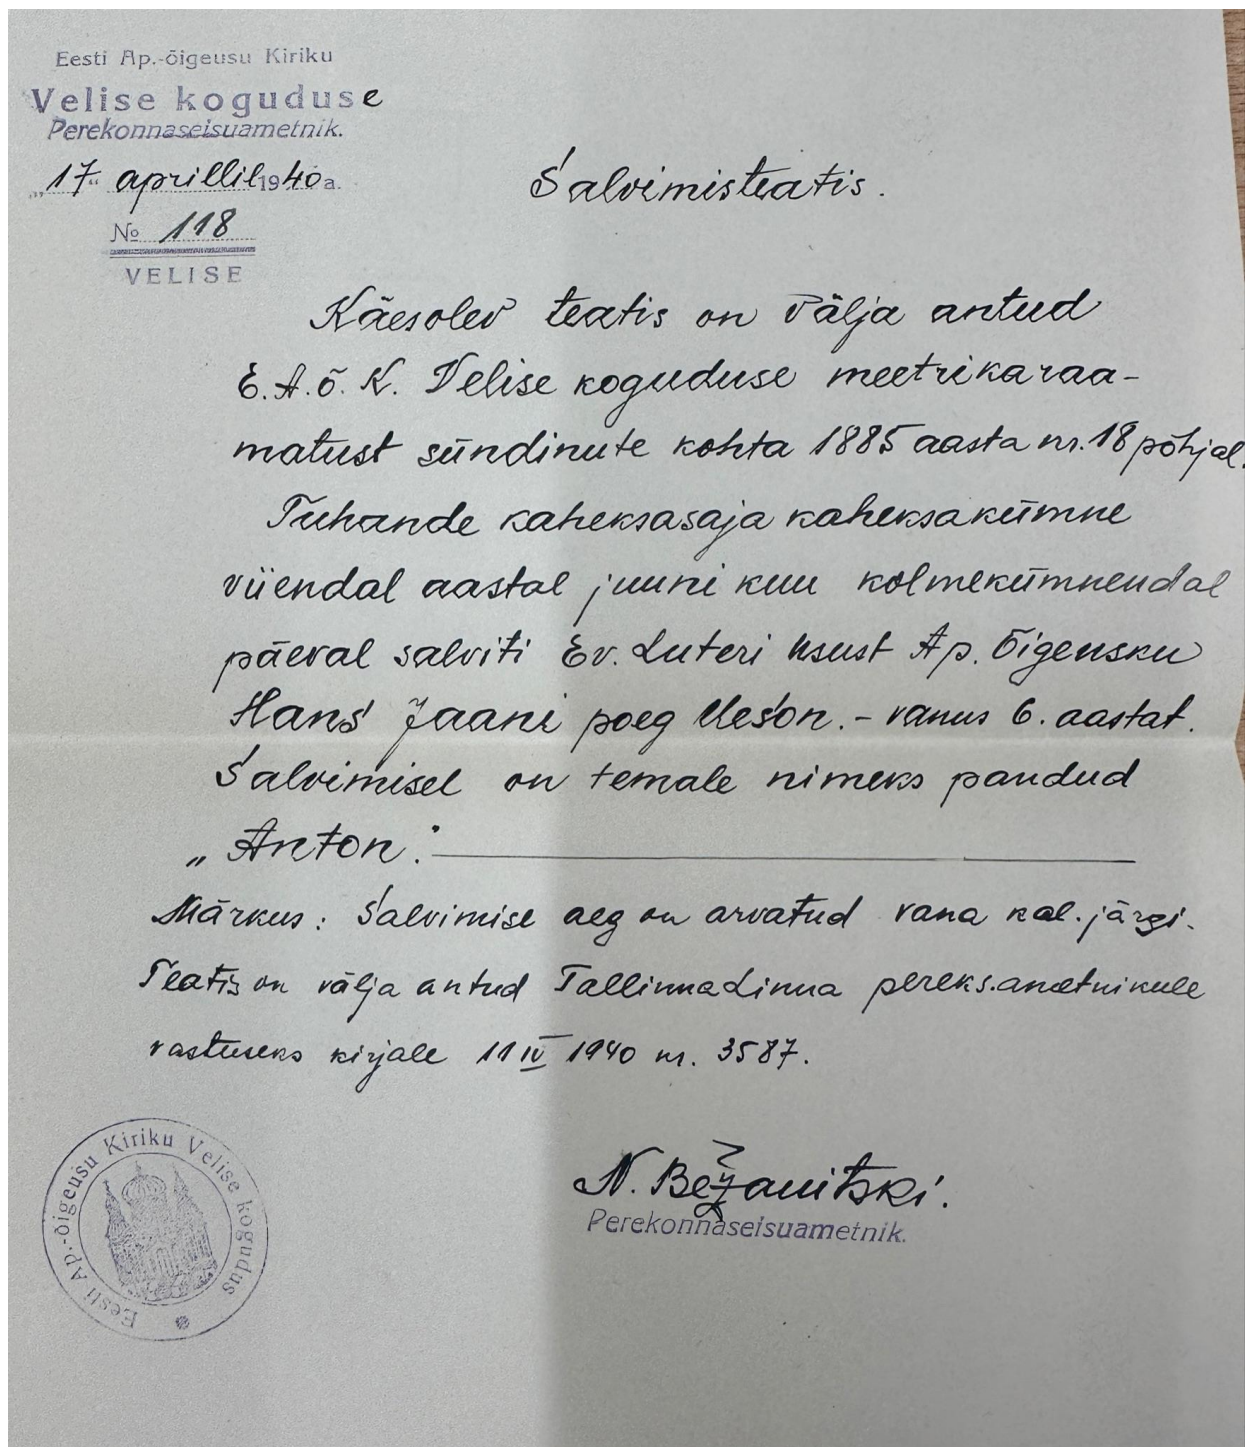 Eesti Ap.-õigeusu Kiriku
Velise koguduse
Perekonnaseisuametnik.
„17“ aprillil 1940 a.
No 118
VELISE
Salvimisteatis.
Käesolev teatis on välja antud
E.A.õ.K. Velise koguduse meetrikaraa-
matust sündinute kohta 1885 aasta nr. 18 põhjal.
Tuhande kaheksasaja kaheksakümne
viiendal aastal juuni kuu kolmekümnendal
päeval salviti Ev. Luteri usust Ap. Õigeusku
Hans Jaani poeg Uesson. - vanus 6. aastat.
Salvimisel on temale nimeks pandud
„Anton.“
Märkus: Salvimise aeg on arvatud vana kal. järgi.
Teatis on välja antud Tallinna Linna pereks.ametnikule
vastuseks kirjale 11 IV 1940 nr. 3587.
N. Bežanitski.
Perekonnaseisuametnik.
Eesti Ap.-õigeusu Kiriku Velise kogudus